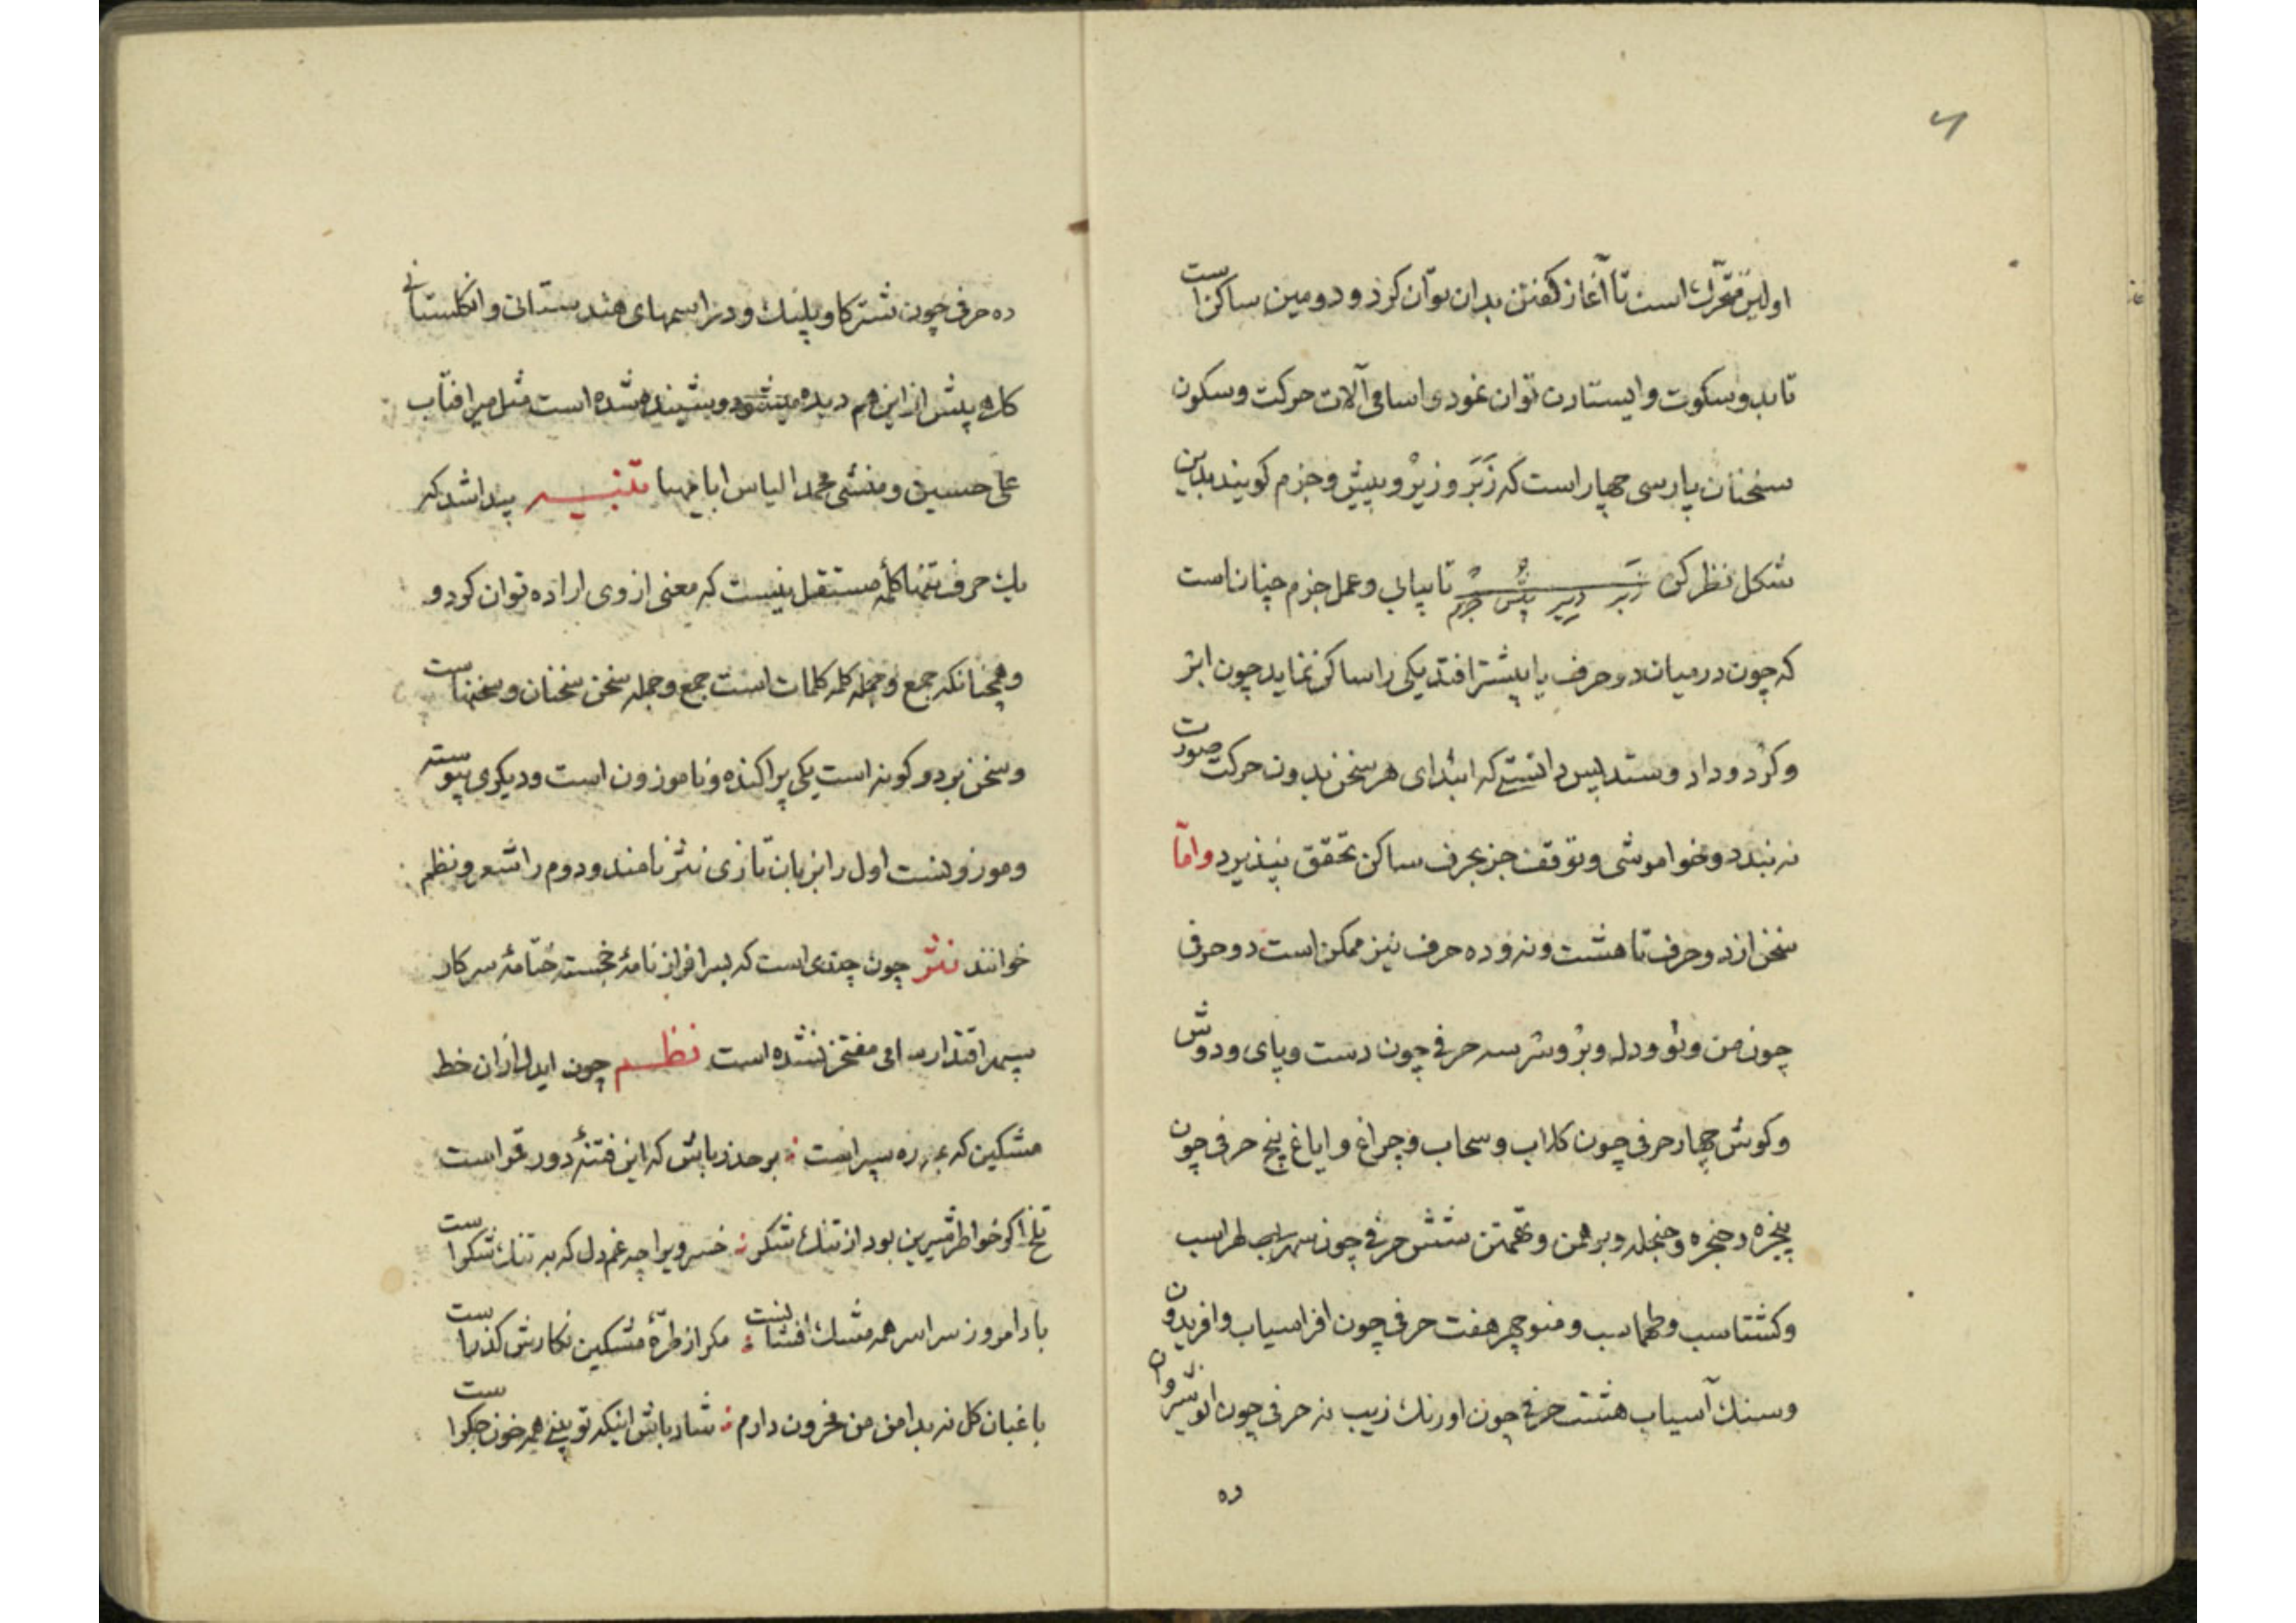 اولین متحرک است تا آغاز کفتن بدان توان کرد و دومین ساکن است
تا بدو سکوت و ایستادن توان نمود اسامی آلات حرکت و سکون
سخنان پارسی چهار است که زَبَر و زیر و پیش و جزم کویند بدین
شکل نظر کن زبر زیر پیش جزم تا بیابی و عمل جزم چنانست
که چون در میان دو حرف یا بیشتر افتد یکی را ساکن نماید چون ابر
و کرد و داد و ستد پس دانستی که ابتدای هر سخن بدون حرکت صورت
نه بندد و خواموشی و توقف جز بحرف ساکن تحقق نپذیرد واما
سخن از دو حرف تا هشت و نه و ده حرف نیز ممکن است دو حرفی
چون من و تو و دل و بر و سر سه حرفی چون دست و پای و دوش
و کوش چهار حرفی چون کلاب و سحاب و چراغ و ایاغ پنج حرفی چون
پنجره و حنجره و حنجله و برهمن و تهمتن شش حرفی چون لهراسب
و کشتاسب و طهماسب و منوچهر هفت حرفی چون افراسیاب و افریدون
و سنک آسیاب هشت حرفی چون اورنک زیب نه حرفی چون انوشیروان
ده
ده حرفی چون شترکاوپلنک و در اسمهای هندستانی و انکلستانی
کاهی بیش از این هم دیده میشود و شنیده شده است مثل میر افتاب
علی حسین و منشی محمد الیاس ابا تنبیه پیدا شد که
یک حرف تنها کلمهٔ مستقل نیست که معنی از وی اراده توان کرد و
و همچنانکه جمع و جمله کلمه کلمات است جمع و جمله سخن سخنان و سخنهاست
و سخن بر دو کونه است یکی پراکنده و ناموزون است و دیکری پیوسته
و موزونست اول را بزبان تازی نثر نامند و دوم را شعر و نظم
خوانند نثر چون چندی است که بسرافراز نامهٔ خجسته ختامهٔ سرکار
سپهر اقتدار سامی مفتخر نشده است نظم چون ایدل از ان خط
مشکین که رده سپر است برحذر باش که این فتنهٔ دور قمر است
تلخ اکر خواطر شیرین بود از تنک شکر خسرو یرا چه غم دل که به تنک شکر است
باد امروز سراسر همه مشک افشانست مکر از طرهٔ مشکین نکارش کذر است
باغبان کل نه بدامن من محزون دارم شاد باش اینکه تو بینی همه خون جکر است